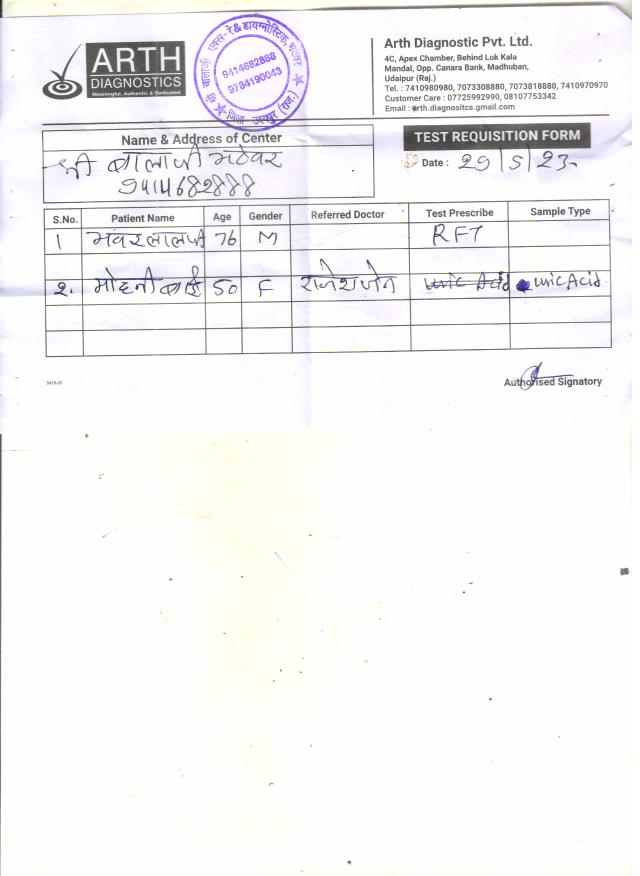 ARTH
DIAGNOSTICS
Meaningful, Authentic & Dedicated
श्री बालाजी एक्स-रे & डायग्नोस्टिक,
9414682888
9784190043
जिला उदयपुर (राज.)
Arth Diagnostic Pvt. Ltd.
4C, Apex Chamber, Behind Lok Kala
Mandal, Opp. Canara Bank, Madhuban,
Udaipur (Raj.)
Tel. : 7410980980, 7073308880, 7073818880, 7410970970
Customer Care : 07725992990, 08107753342
Email : arth.diagnositcs.gmail.com
Name & Address of Center
श्री बालाजी
9414682888
TEST REQUISITION FORM
Date : 29/5/23
S.No. Patient Name Age Gender Referred Doctor Test Prescribe Sample Type
1 भवरलालजी 76 M RFT
2. मोहनी बाई 50 F राजेश जैन Uric Acid Uric Acid.
5478-20
Authorised Signatory